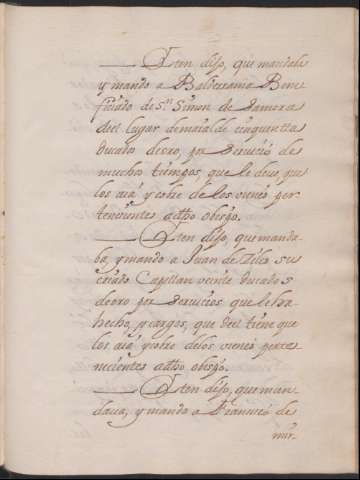 Iten dijo, que mandaba
y mando a Balderrama Bene
ficiado de Sn. Simon de Zamora
del lugar de cinquenta
ducados de oro, por servicio de
mucho tiempos, que le deue, que
los aia y cobre de los vienes per-
tenecientes a dho obispo.
Iten dijo, que manda
ba, y mando a Juan de su
criado Capellan veinte ducados
de oro por servicios que le ha
hecho, y cargos, que del tiene que
los aia y cobre delos vienes perte
necientes a dho obispo.
Iten dijo, que man
daua, y mando a Francisco de
mir-